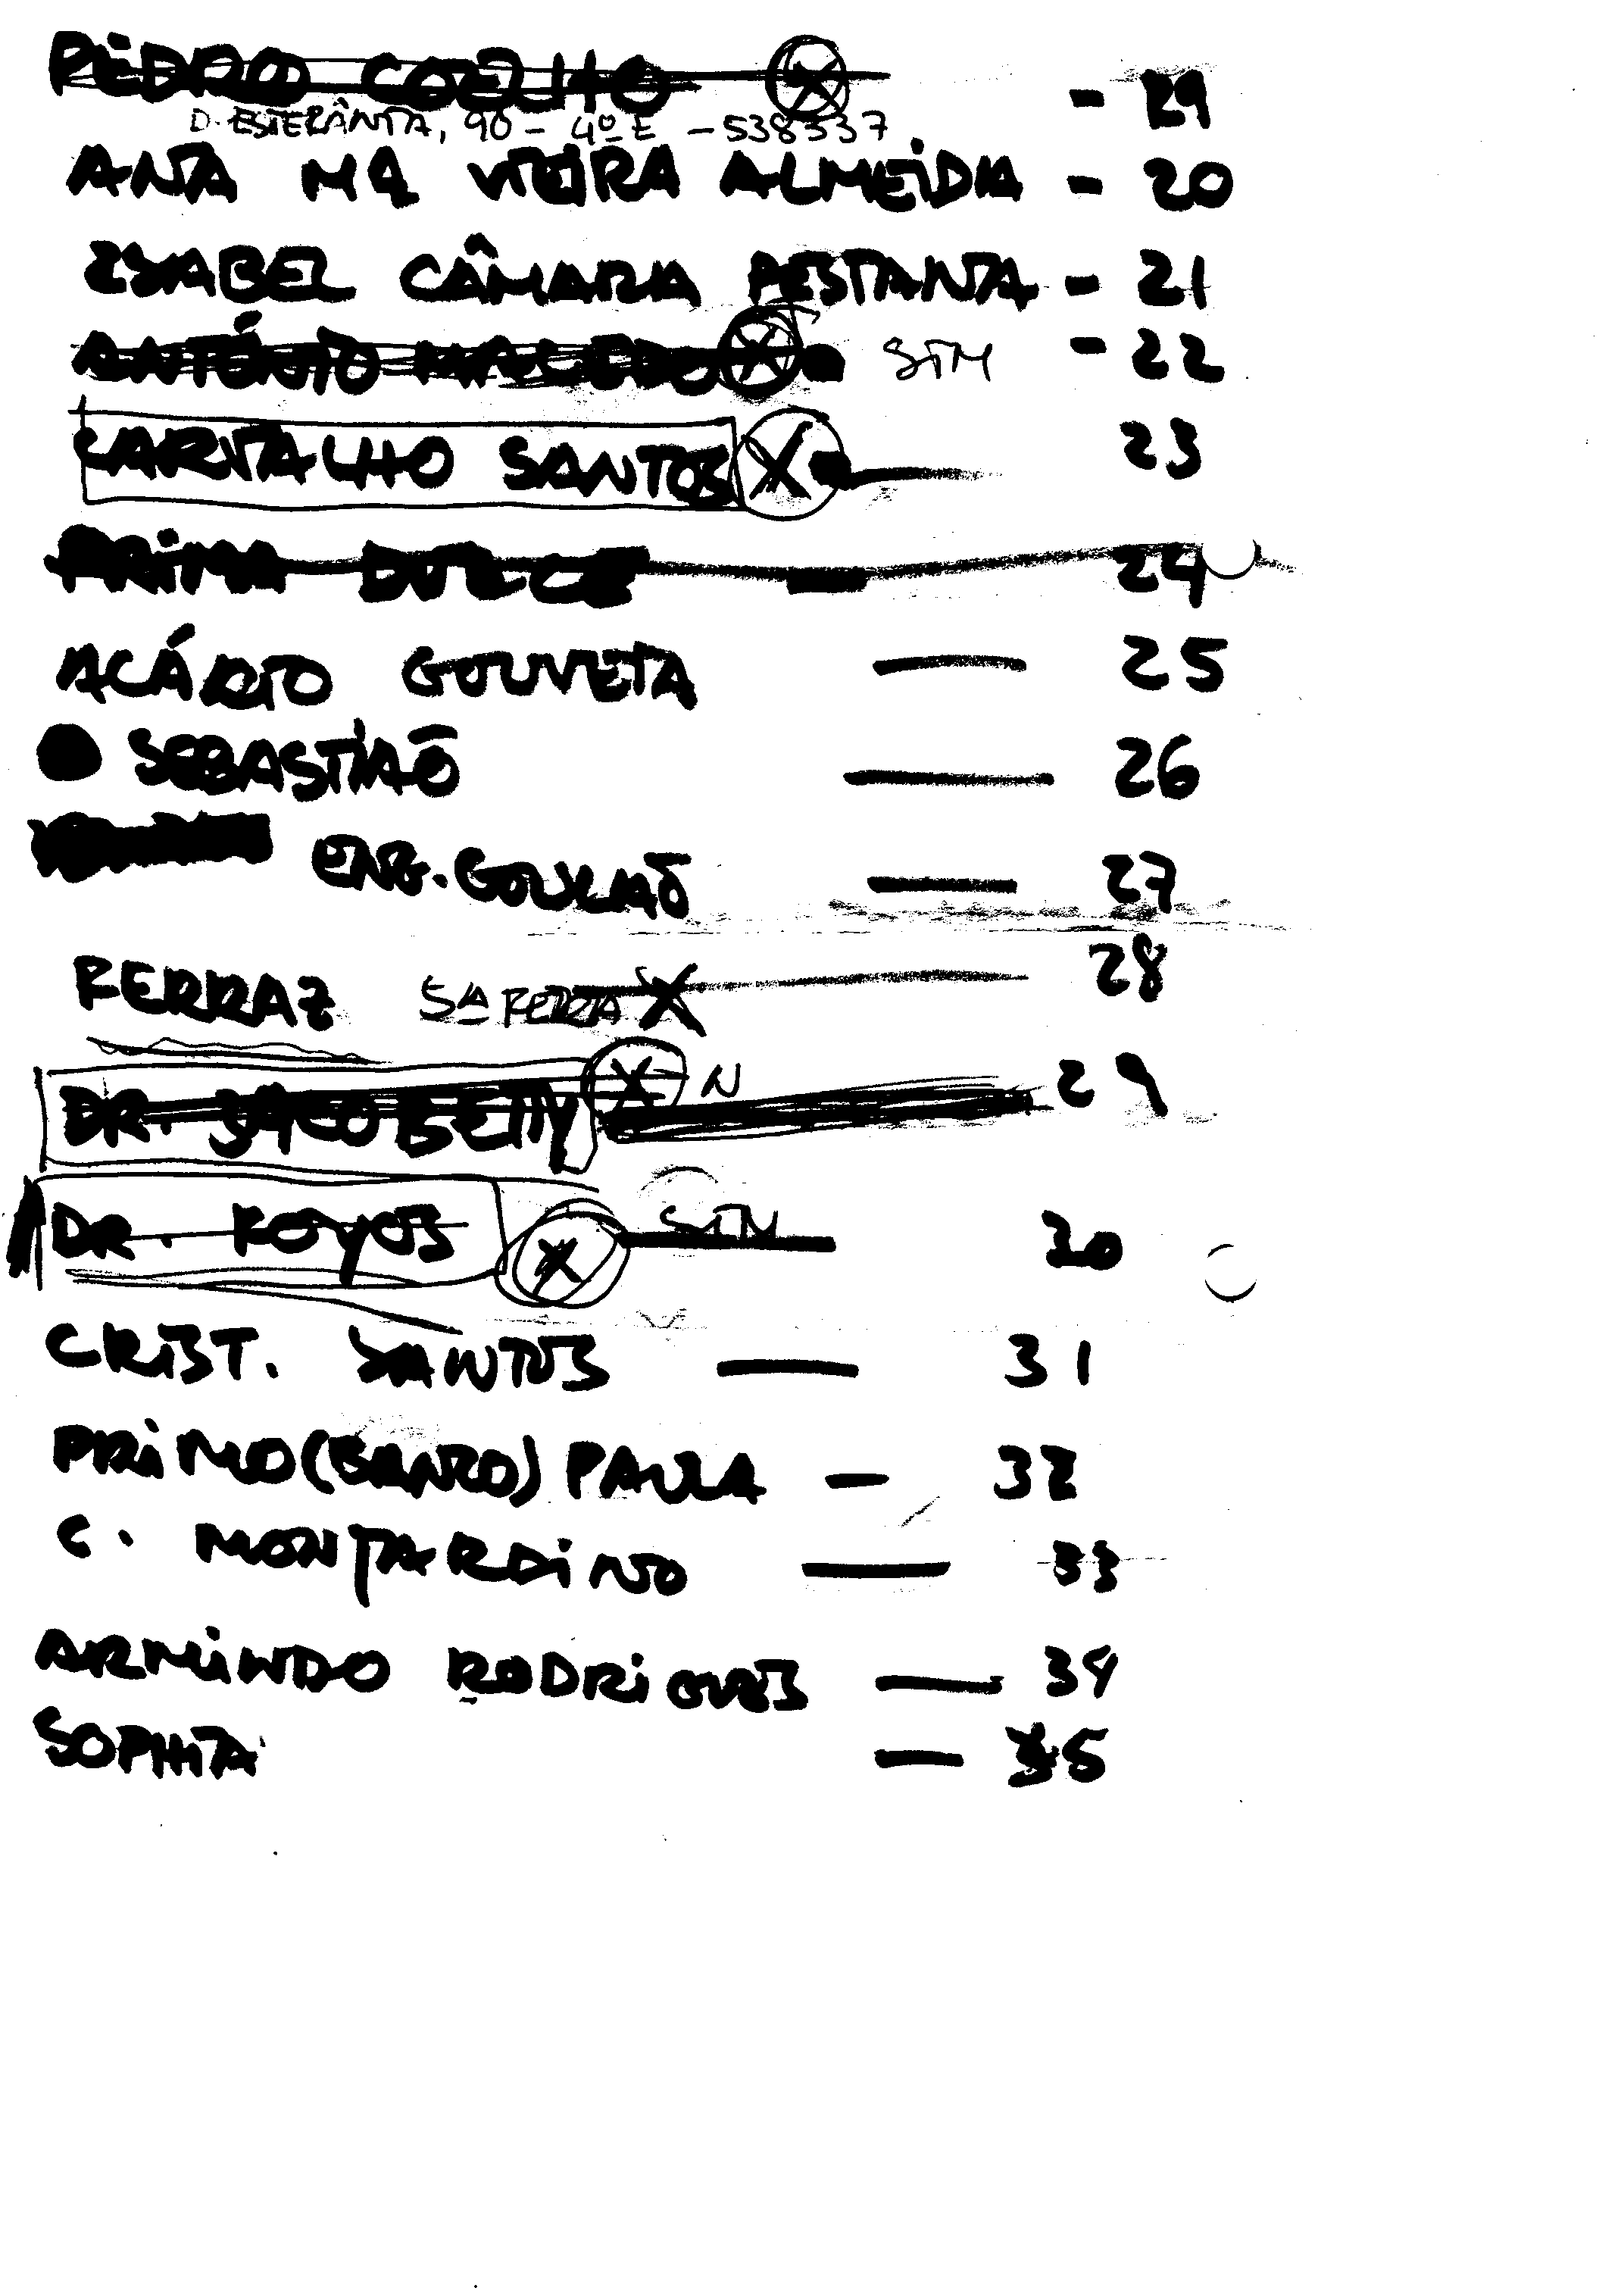 PEDRO COELHO - 29
D. ESTEFÂNIA, 90 - 4º E - 538537
ANA Mª VIEIRA ALMEIDA - 20
ISABEL CÂMARA PESTANA - 21
ANTÓNIO MACEDO SIM - 22
CARVALHO SANTOS X — 23
PRIMA DULCE — 24
ACÁRIO GOUVEIA — 25
SEBASTIÃO — 26
ENG. GOULÃO — 27
FERRAZ 5ª FEIRA X — 28
DR. JACOBETTY X N 29
DR. ROYOS X SIM 30
CRIST. SANTOS — 31
PRIMO (BANCO) PAULA — 32
C. MONJARDINO — 33
ARMINDO RODRIGUES — 34
SOPHIA — 35